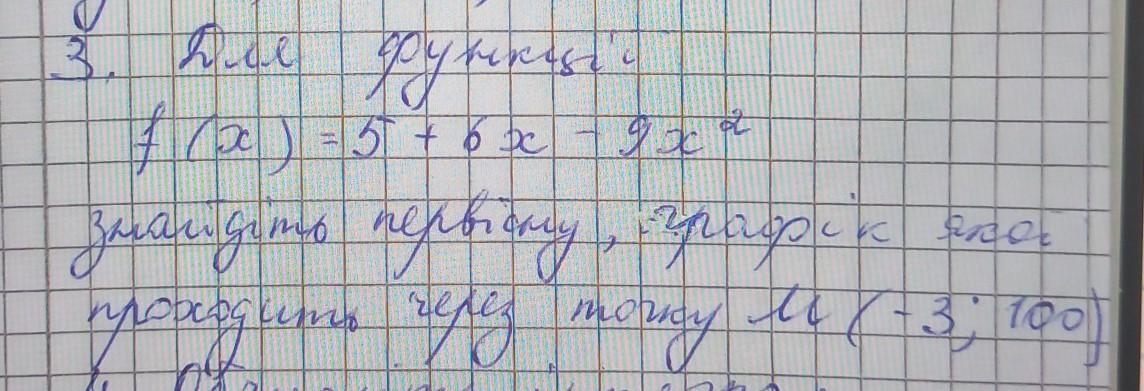 3. Для функції
f(x) = 5 + 6x - 9x²
знайдіть первісну, графік якої
проходить через точку M (-3; 100)